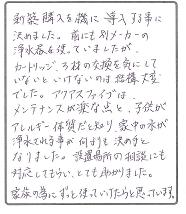 新築購入を機に導入する事に
決めました。前にも別メーカーの
浄水器を使っていましたが、
カートリッジ、ろ材の交換を気にして
いないといけないのは結構大変
でした。アクアスファイブは、
メンテナンスが楽な点と、子供が
アレルギー体質だと知り、家中の水が
浄水である事が何よりも決め手と
なりました。設置場所の相談にも
対応してもらい、とても助かりました。
家族の為にずっと使っていけたらと思っています。